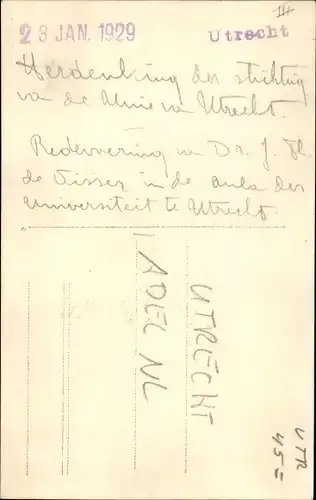 III
23 JAN. 1929 Utrecht
Herdenking der stichting
van de Unie van Utrecht.
Redevoering van Dr. J. Th.
de Visser in de aula der
Universiteit te Utrecht.
ADEL NL
UTRECHT
UTR
45=